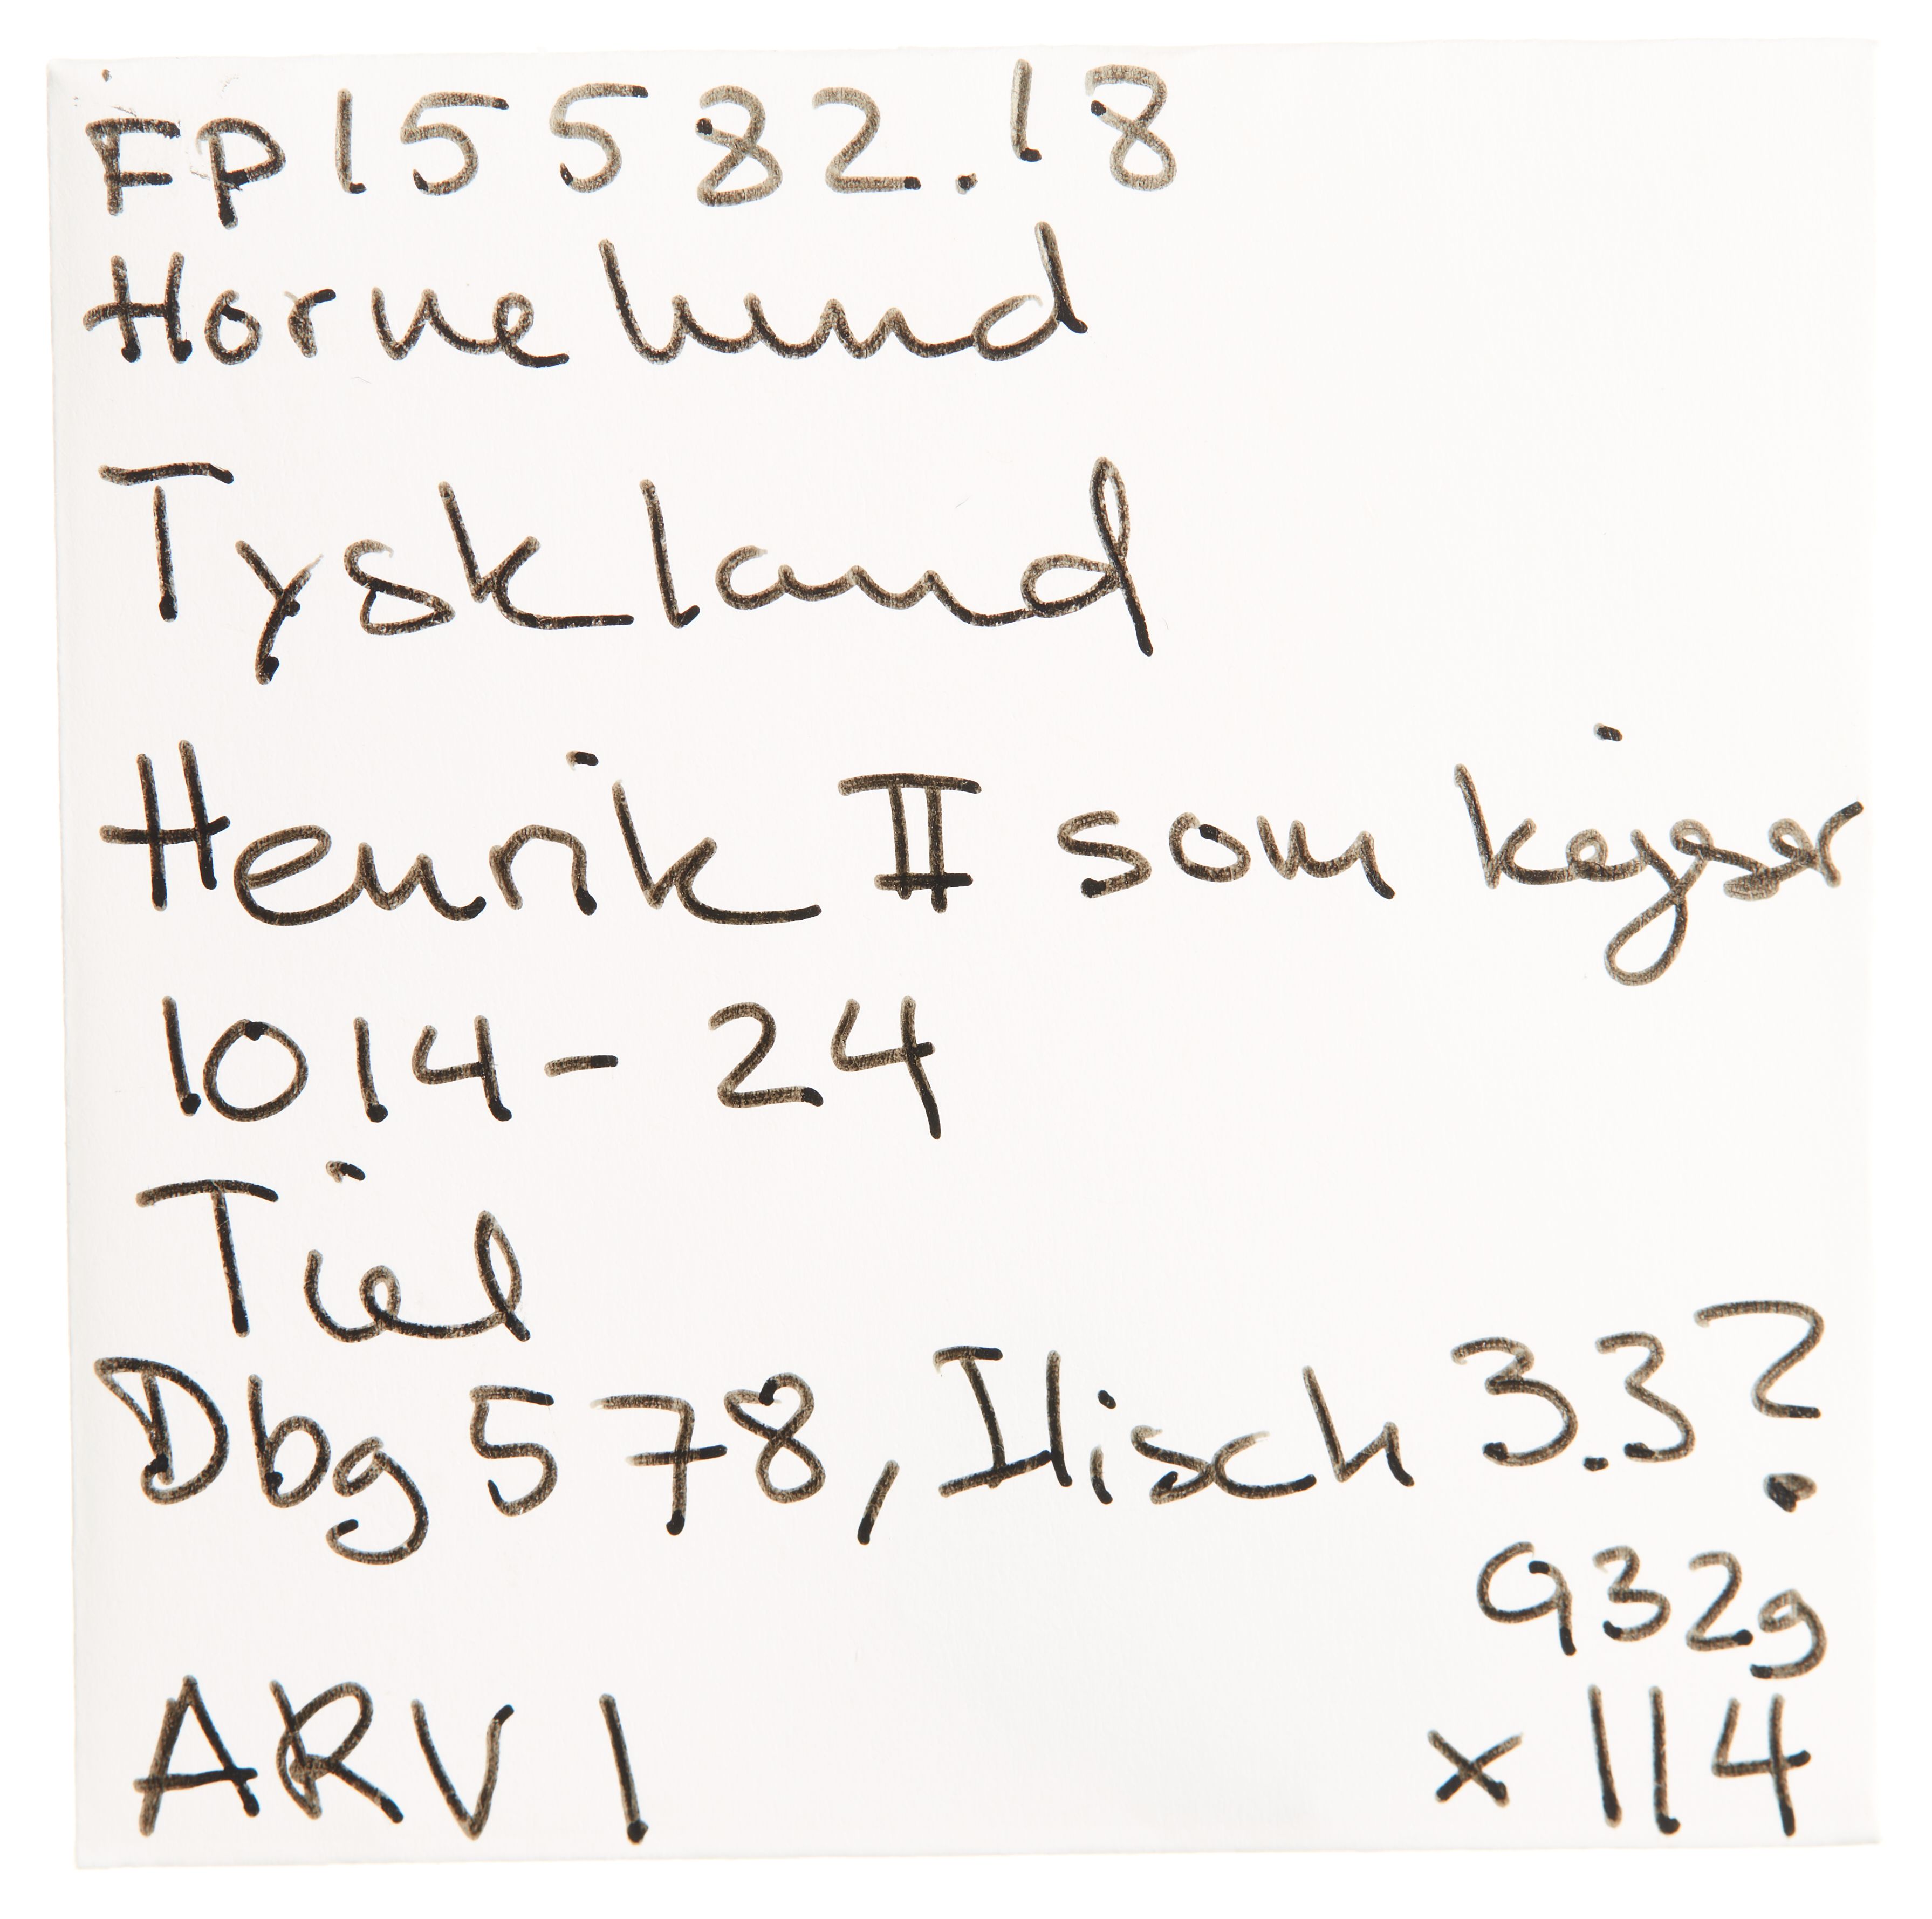 FP15582.18
Hornelund
Tyskland
Henrik II som kejser
1014-24
Tiel
Dbg 578, Ilisch 3.3?
932g
ARV1 x114